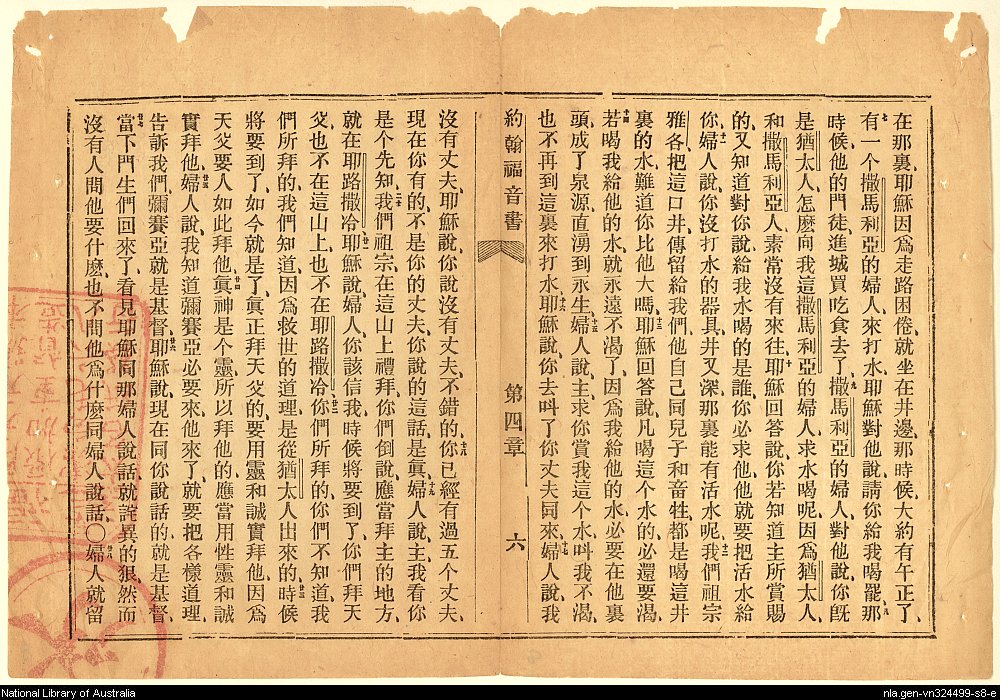 在那裏、耶穌因爲走路困倦、就坐在井邊、那時候大約有午正了、
七有一个撒馬利亞的婦人來打水、耶穌對他說、請你給我喝罷、八那
時候他的門徒進城買吃食去了、九撒馬利亞的婦人對他說、你旣
是猶太人、怎麽向我這撒馬利亞的婦人求水喝呢、因爲猶太人
和撒馬利亞人素常沒有來往、十耶穌回答說、你若知道主所賞賜
的、又知道對你說給我水喝的是誰、你必求他、他就要把活水給
你、十一婦人說、你沒打水的器具、井又深、那裏能有活水呢、十二我們祖宗
雅各、把這口井傳留給我們、他自己同兒子和音牲、都是喝這井
裏的水、難道你比他大嗎、十三耶穌回答說、凡喝這个水的、必還要渴、
十四若喝我給他的水、就永遠不渴了、因爲我給他的水、必要在他裏
頭成了泉源、直湧到永生、十五婦人說、主、求你賞我這个水、呌我不渴、
也不再到這裏來打水、十六耶穌說、你去呌了你丈夫同來、十七婦人說、我
約翰福音書
第四章
六
沒有丈夫、耶穌說、你說沒有丈夫、不錯的、十八你已經有過五个丈夫、
現在你有的、不是你的丈夫、你說的這話是眞、十九婦人說、主、我看你
是个先知、二十我們祖宗在這山上禮拜、你們倒說、應當拜主的地方、
就在耶路撒冷、廿一耶穌說、婦人、你該信我、時候將要到了、你們拜天
父、也不在這山上、也不在耶路撒冷、廿二你們所拜的、你們不知道、我
們所拜的、我們知道、因爲救世的道理、是從猶太人出來的、廿三時候
將要到了、如今就是了、眞正拜天父的、要用靈和誠實拜他、因爲
天父要人如此拜他、廿四眞神是个靈、所以拜他的、應當用性靈和誠
實拜他、廿五婦人說、我知道彌賽亞必要來、他來了、就要把各樣道理
告訴我們、彌賽亞就是基督、廿六耶穌說、現在同你說話的、就是基督、
廿七當下門生們回來了、看見耶穌同那婦人說話、就詫異的狠、然而
沒有人問他要什麽、也不問他爲什麽同婦人說話、〇廿八婦人就留
National Library of Australia
nla.gen-vn324499-s8-e